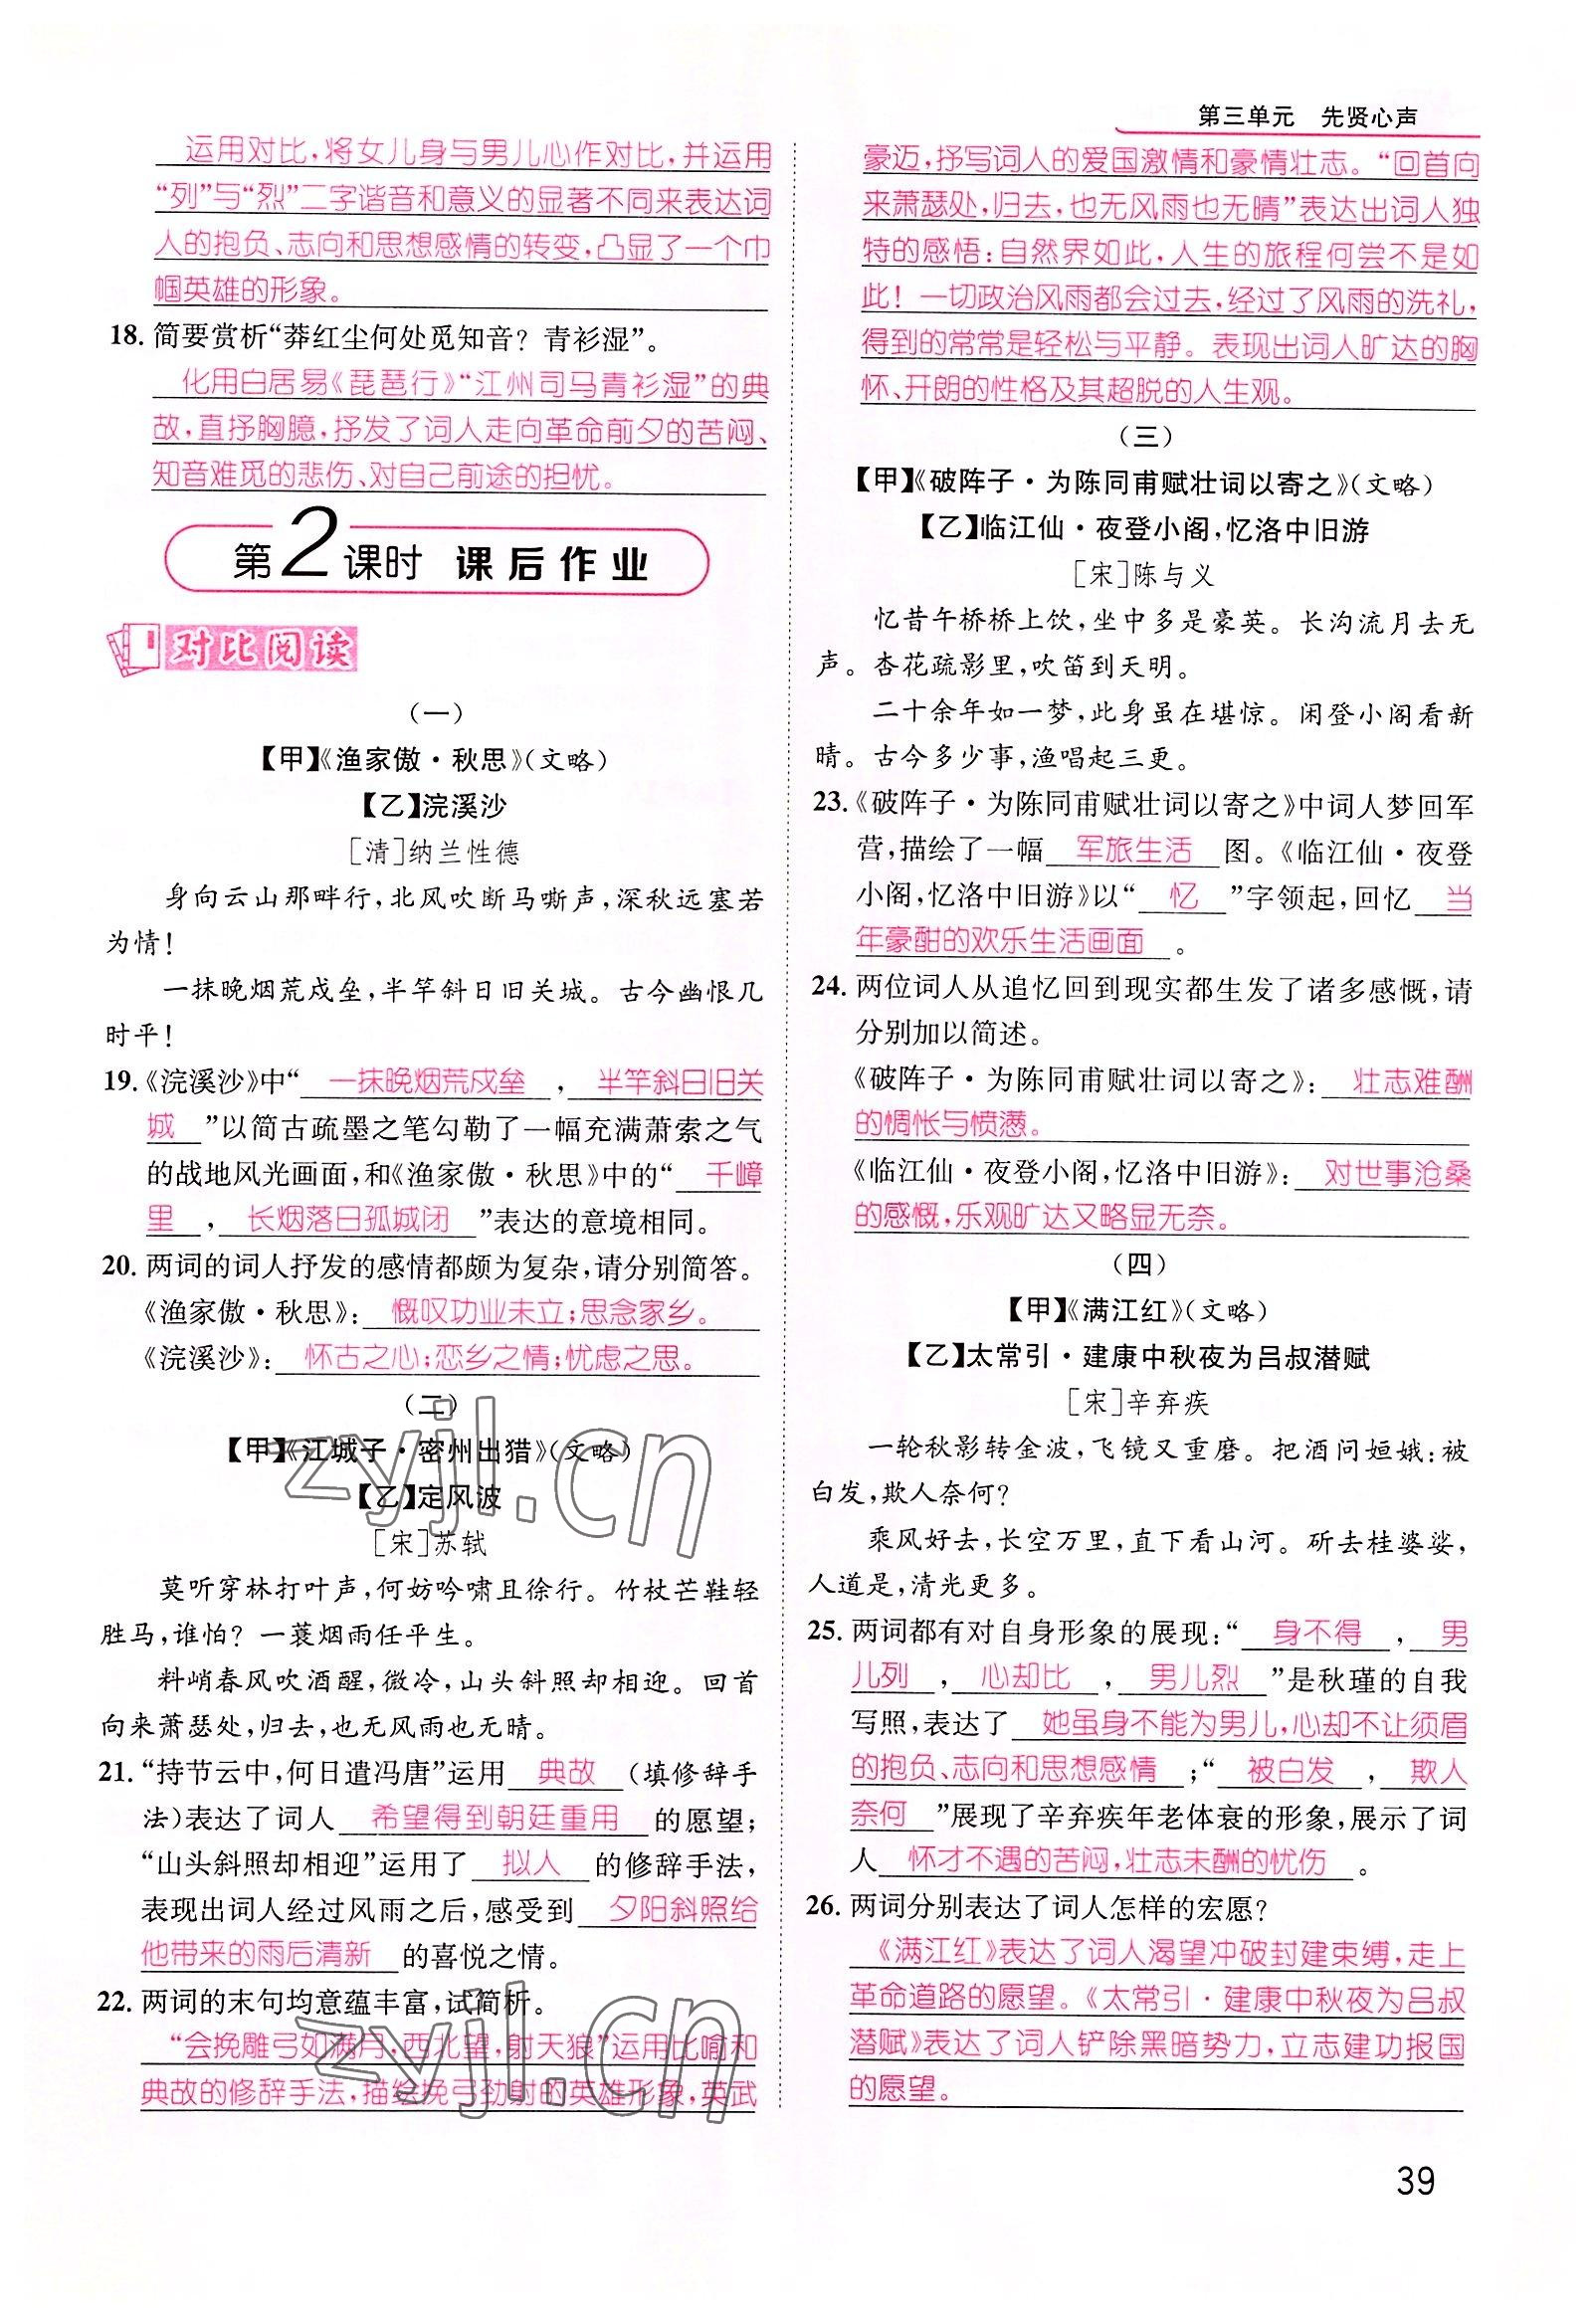 第三单元 先贤心声
运用对比，将女儿身与男儿心作对比，并运用
“列”与“烈”二字谐音和意义的显著不同来表达词
人的抱负、志向和思想感情的转变，凸显了一个巾
帼英雄的形象。
18. 简要赏析“莽红尘何处觅知音？青衫湿”。
化用白居易《琵琶行》“江州司马青衫湿”的典
故，直抒胸臆，抒发了词人走向革命前夕的苦闷、
知音难觅的悲伤、对自己前途的担忧。
第2课时 课后作业
对比阅读
（一）
【甲】《渔家傲·秋思》（文略）
【乙】浣溪沙
［清］纳兰性德
身向云山那畔行，北风吹断马嘶声，深秋远塞若
为情！
一抹晚烟荒戍垒，半竿斜日旧关城。古今幽恨几
时平！
19.《浣溪沙》中“ 一抹晚烟荒戍垒 ， 半竿斜日旧关
城 ”以简古疏墨之笔勾勒了一幅充满萧索之气
的战地风光画面，和《渔家傲·秋思》中的“ 千嶂
里 ， 长烟落日孤城闭 ”表达的意境相同。
20. 两词的词人抒发的感情都颇为复杂，请分别简答。
《渔家傲·秋思》： 慨叹功业未立；思念家乡。
《浣溪沙》： 怀古之心；恋乡之情；忧虑之思。
（二）
【甲】《江城子·密州出猎》（文略）
【乙】定风波
［宋］苏轼
莫听穿林打叶声，何妨吟啸且徐行。竹杖芒鞋轻
胜马，谁怕？一蓑烟雨任平生。
料峭春风吹酒醒，微冷，山头斜照却相迎。回首
向来萧瑟处，归去，也无风雨也无晴。
21. “持节云中，何日遣冯唐”运用 典故 （填修辞手
法）表达了词人 希望得到朝廷重用 的愿望；
“山头斜照却相迎”运用了 拟人 的修辞手法，
表现出词人经过风雨之后，感受到 夕阳斜照给
他带来的雨后清新 的喜悦之情。
22. 两词的末句均意蕴丰富，试简析。
“会挽雕弓如满月，西北望，射天狼”运用比喻和
典故的修辞手法，描绘挽弓劲射的英雄形象，英武
豪迈，抒写词人的爱国激情和豪情壮志。“回首向
来萧瑟处，归去，也无风雨也无晴”表达出词人独
特的感悟：自然界如此，人生的旅程何尝不是如
此！一切政治风雨都会过去，经过了风雨的洗礼，
得到的常常是轻松与平静。表现出词人旷达的胸
怀、开朗的性格及其超脱的人生观。
（三）
【甲】《破阵子·为陈同甫赋壮词以寄之》（文略）
【乙】临江仙·夜登小阁，忆洛中旧游
［宋］陈与义
忆昔午桥桥上饮，坐中多是豪英。长沟流月去无
声。杏花疏影里，吹笛到天明。
二十余年如一梦，此身虽在堪惊。闲登小阁看新
晴。古今多少事，渔唱起三更。
23.《破阵子·为陈同甫赋壮词以寄之》中词人梦回军
营，描绘了一幅 军旅生活 图。《临江仙·夜登
小阁，忆洛中旧游》以“ 忆 ”字领起，回忆 当
年豪酣的欢乐生活画面 。
24. 两位词人从追忆回到现实都生发了诸多感慨，请
分别加以简述。
《破阵子·为陈同甫赋壮词以寄之》： 壮志难酬
的惆怅与愤懑。
《临江仙·夜登小阁，忆洛中旧游》： 对世事沧桑
的感慨，乐观旷达又略显无奈。
（四）
【甲】《满江红》（文略）
【乙】太常引·建康中秋夜为吕叔潜赋
［宋］辛弃疾
一轮秋影转金波，飞镜又重磨。把酒问姮娥：被
白发，欺人奈何？
乘风好去，长空万里，直下看山河。斫去桂婆娑，
人道是，清光更多。
25. 两词都有对自身形象的展现：“ 身不得 ， 男
儿列 ， 心却比 ， 男儿烈 ”是秋瑾的自我
写照，表达了 她虽身不能为男儿，心却不让须眉
的抱负、志向和思想感情 ；“ 被白发 ， 欺人
奈何 ”展现了辛弃疾年老体衰的形象，展示了词
人 怀才不遇的苦闷，壮志未酬的忧伤 。
26. 两词分别表达了词人怎样的宏愿？
《满江红》表达了词人渴望冲破封建束缚，走上
革命道路的愿望。《太常引·建康中秋夜为吕叔
潜赋》表达了词人铲除黑暗势力，立志建功报国
的愿望。
39
zyjl.cn
zyjl.cn